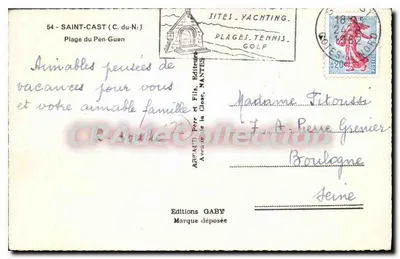 54 - SAINT-CAST (C.-du-N.)
Plage du Pen-Guen
SITES - YACHTING.
PLAGES - TENNIS.
GOLF
Aimables pensées de
vacances pour vous
et votre aimable famille
Madame Pitoussi
7 A. Pierre Grenier
Boulogne
Seine
ARTAUD Père et Fils, Editeurs
Avenue de la Close, NANTES
Editions GABY
Marque déposée